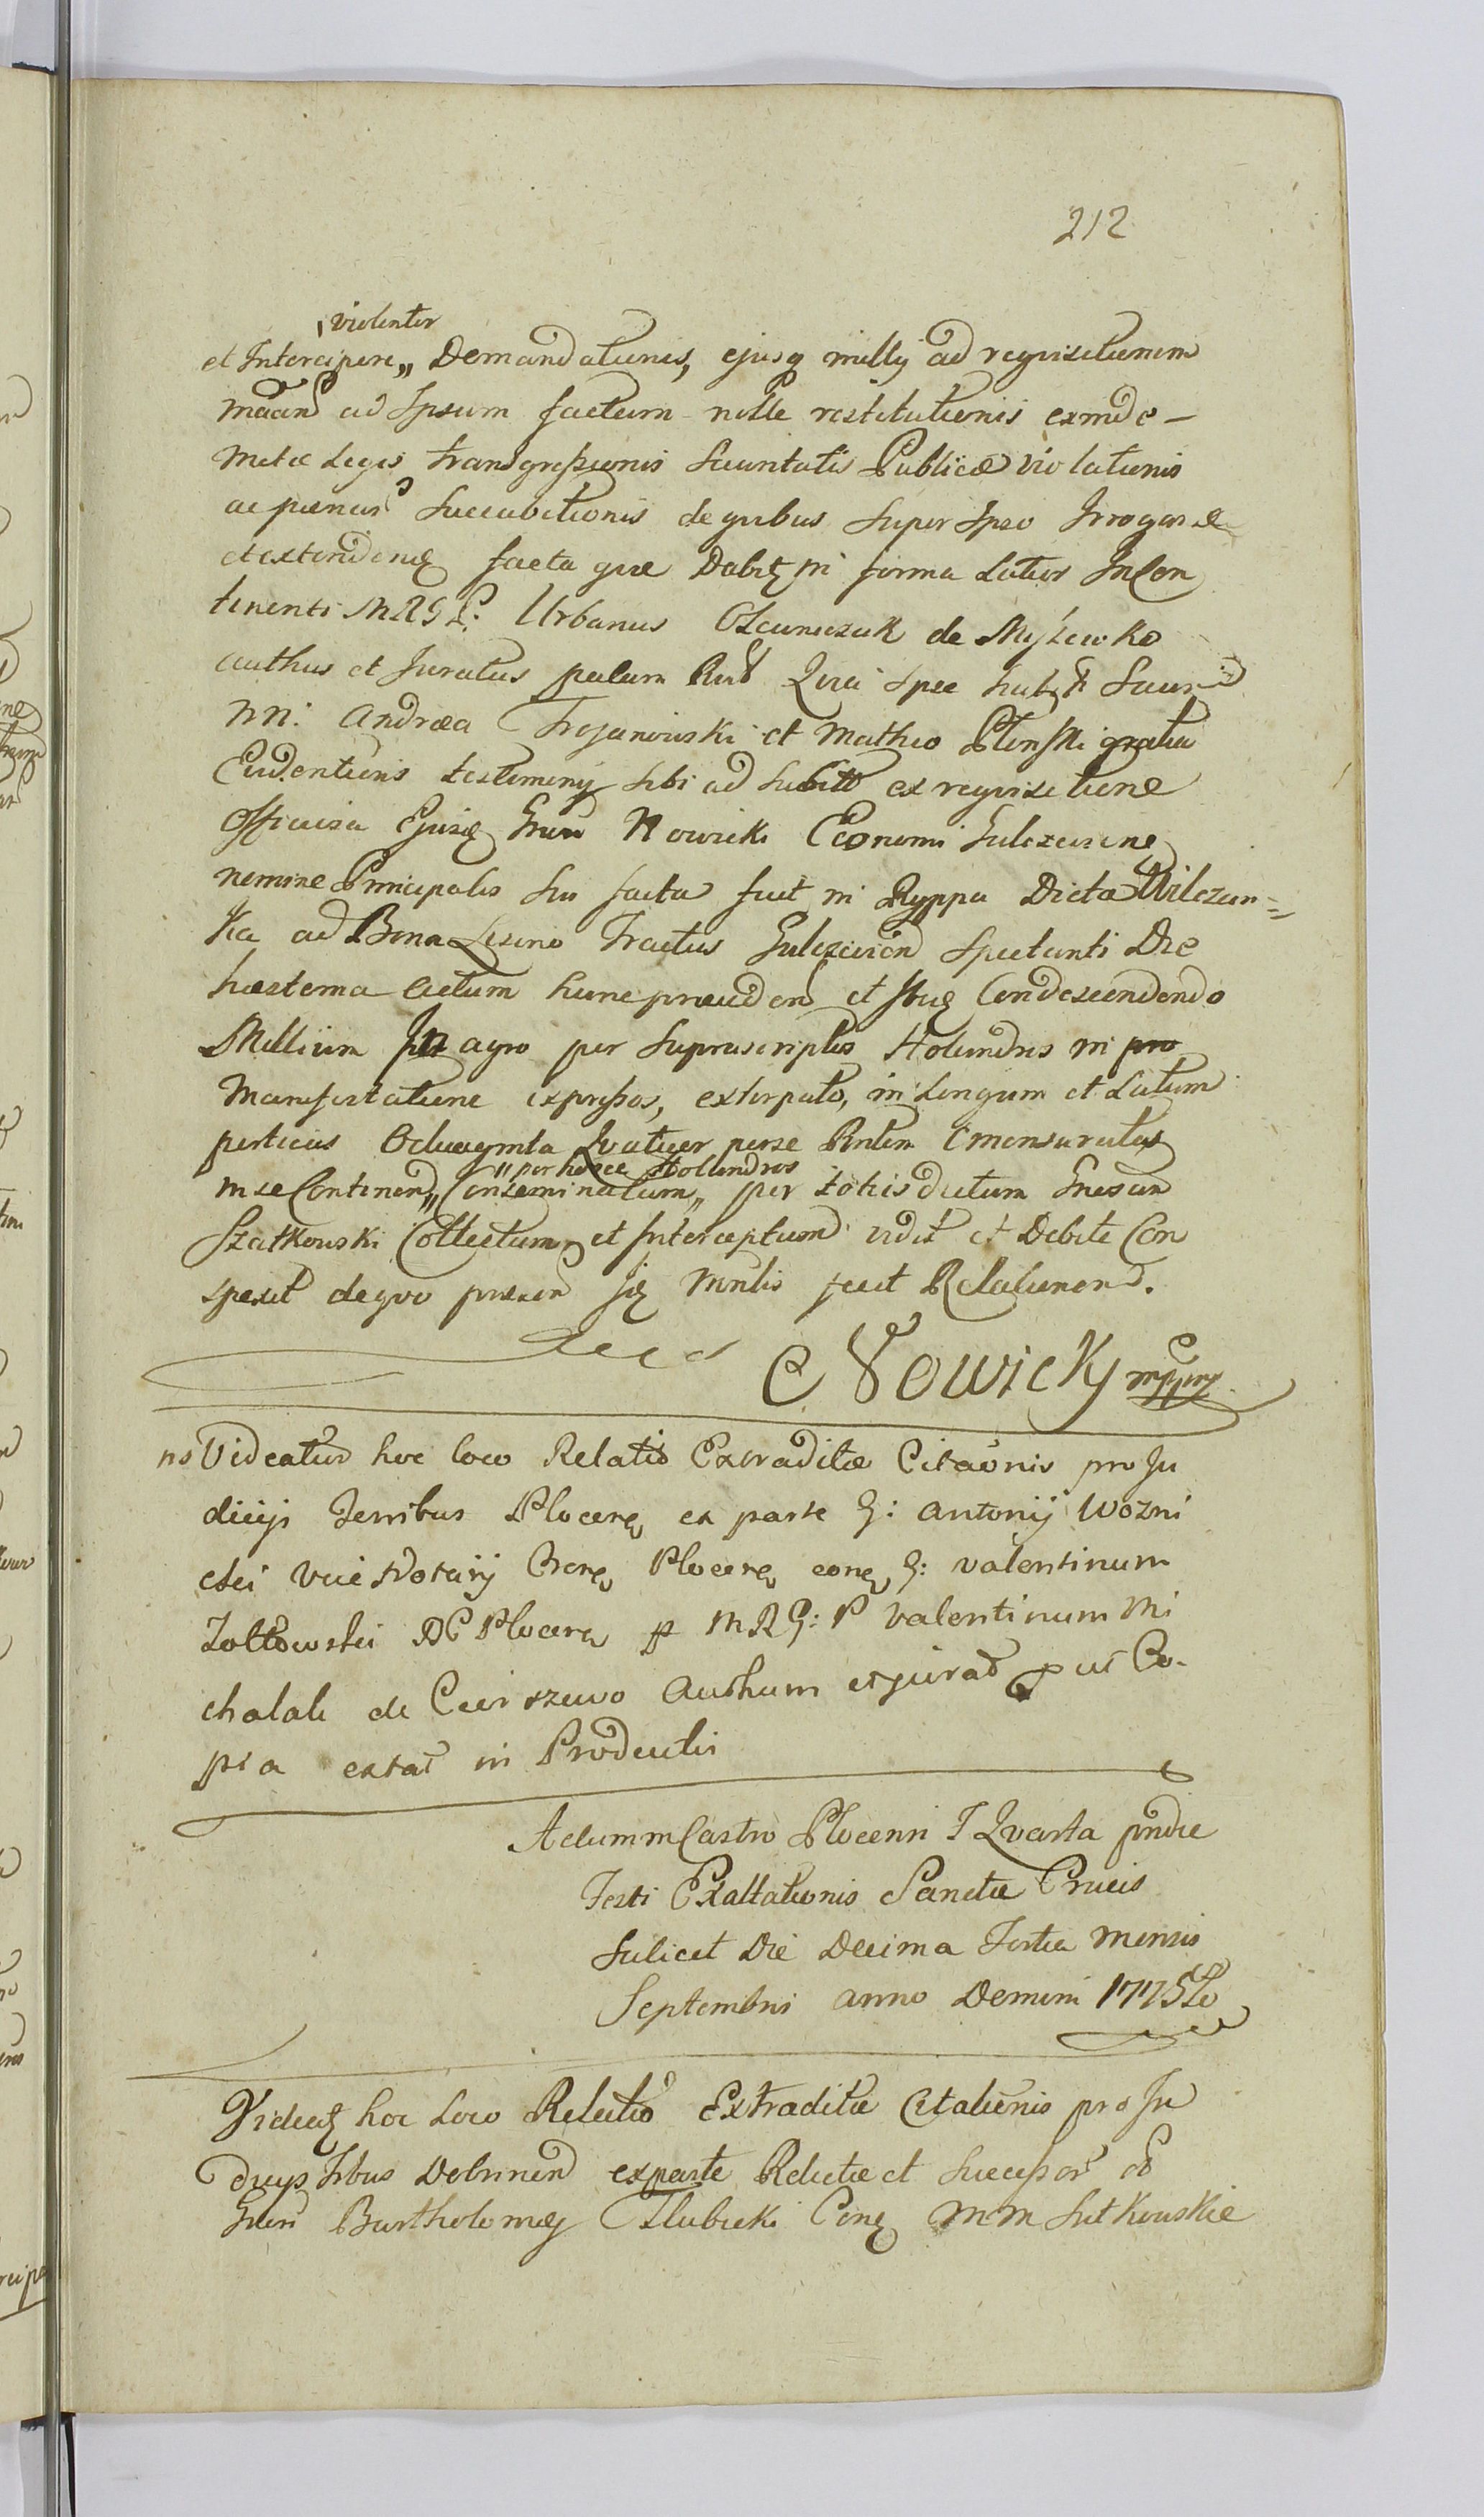 212
violenter
et Intercipere,, Demandationis, ejusq milly ad reqvisitionem
ad Ipsum factum nolle restitutionis exinde
Metæ Legis transgressionis Securitatis Publicæ violationis
ac pænar Succubitionis de qvibus Super Ipso Irrogar
et extendend facta qvæ Dabit in forma Latior InCon
tinenti MRGL: Urbanus de Myszewko
authus et Juratus palam Qvia Ipse
NN: Andræa Trojanowski et Matheo gratia
Evidentioris testimony Sibi ad ex reqvisitione
Officiosa Nowicki Economi Gulczewien
nomine Principalis Sui facta fuit in Ryppa Dicta Wilczan=
ka ad Bona Liszino Tractus Gulczewien Spectanti Die
hæsterna actum hunc præceden et Condescendendo
Millium In agro per Suprascriptos Holendros in pro
Manifestatione expressos, extirpato, in Longum et Latum
perticas Octuaginta Qvatuor perse Emensuratas
,, per hosce Hollendros
inse Continen,, Conseminatum,, per totiesdictum
Szatkowski Collectum et Interceptum vidit et Debite Con
spexit deqvo præsen fecit Relationem.
Nowicky mppria
ns Videatur hoc loco Relatio Extraditæ Citaonis pro Ju
dicijs Terribus Plocen ex parte G: Antonij Wozni
cki Vice Notarij Plocen con G: Valentinum
Zołtowski Plocen p MRG: P Valentinum Mi
chalak de authum et jurat put Co
pia extat in Productis
Actum in Castro Plocensi F Qvarta pridie
Festi Exaltationis Sanctæ Crucis
Scilicet Die Decima Tertia Mensis
Septembris Anno Domini 1775to
Videat hoc Loco Relatio Extraditæ Citationis pro Ju
dicijs Dobrinen exparte Relictæ et Successor
Bartholomæj Con MM Sutkowskie